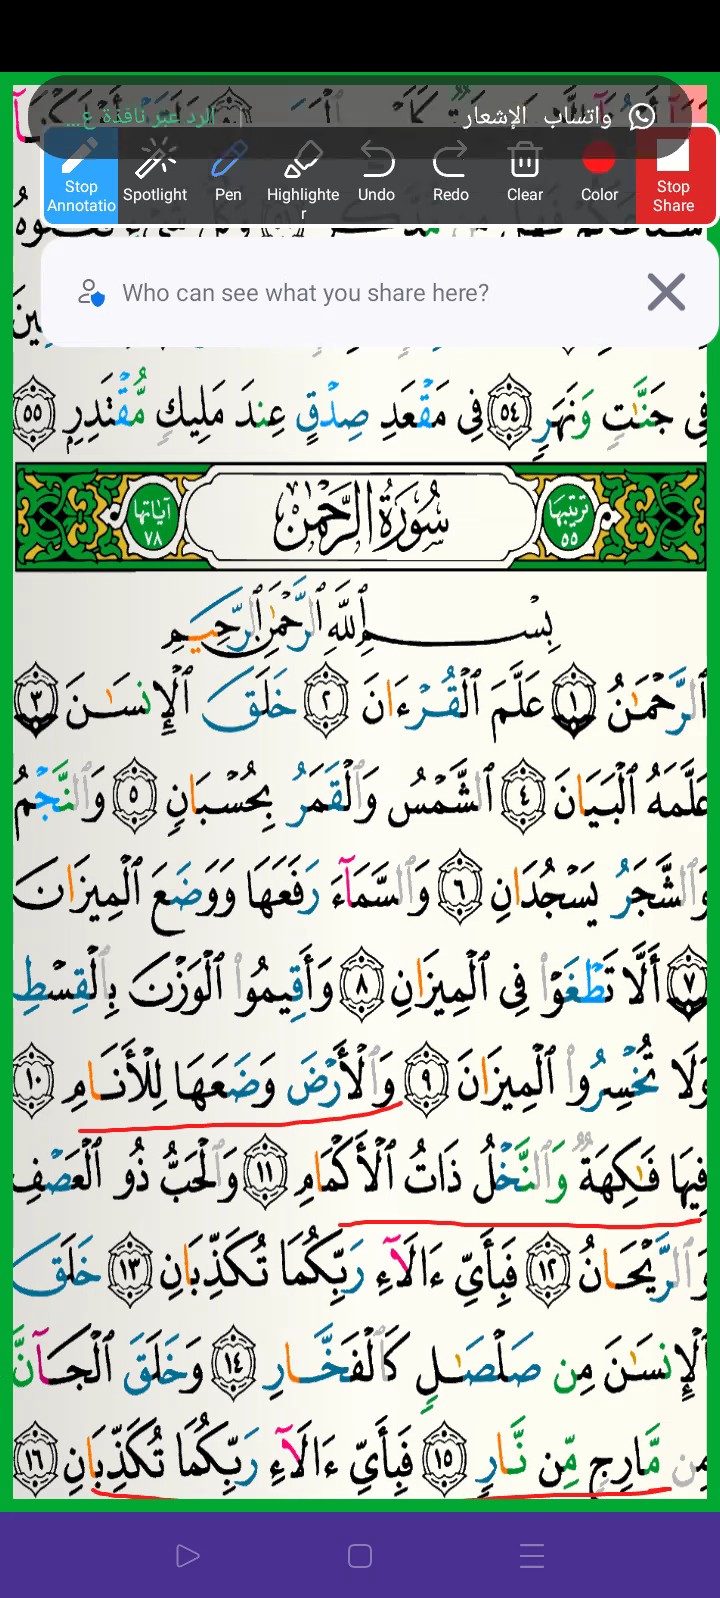 واتساب الإشعار الرد عبر نافذة ع...
Stop Annotatio
Spotlight
Pen
Highlighter
Undo
Redo
Clear
Color
Stop Share
Who can see what you share here?
فِى جَنَّٰتٍ وَنَهَرٍ ٥٤ فِى مَقْعَدِ صِدْقٍ عِندَ مَلِيكٍ مُّقْتَدِرٍ ٥٥
ترتيبها ٥٥ سُورَةُ الرَّحْمٰن آياتها ٧٨
بِسْمِ ٱللَّهِ ٱلرَّحْمَٰنِ ٱلرَّحِيمِ
ٱلرَّحْمَٰنُ ١ عَلَّمَ ٱلْقُرْءَانَ ٢ خَلَقَ ٱلْإِنسَٰنَ ٣
عَلَّمَهُ ٱلْبَيَانَ ٤ ٱلشَّمْسُ وَٱلْقَمَرُ بِحُسْبَانٍ ٥ وَٱلنَّجْمُ
وَٱلشَّجَرُ يَسْجُدَانِ ٦ وَٱلسَّمَآءَ رَفَعَهَا وَوَضَعَ ٱلْمِيزَانَ
٧ أَلَّا تَطْغَوْا۟ فِى ٱلْمِيزَانِ ٨ وَأَقِيمُوا۟ ٱلْوَزْنَ بِٱلْقِسْطِ
وَلَا تُخْسِرُوا۟ ٱلْمِيزَانَ ٩ وَٱلْأَرْضَ وَضَعَهَا لِلْأَنَامِ ١٠
فِيهَا فَٰكِهَةٌ وَٱلنَّخْلُ ذَاتُ ٱلْأَكْمَامِ ١١ وَٱلْحَبُّ ذُو ٱلْعَصْفِ
وَٱلرَّيْحَانُ ١٢ فَبِأَىِّ ءَالَآءِ رَبِّكُمَا تُكَذِّبَانِ ١٣ خَلَقَ
ٱلْإِنسَٰنَ مِن صَلْصَٰلٍ كَٱلْفَخَّارِ ١٤ وَخَلَقَ ٱلْجَآنَّ
مِن مَّارِجٍ مِّن نَّارٍ ١٥ فَبِأَىِّ ءَالَآءِ رَبِّكُمَا تُكَذِّبَانِ ١٦